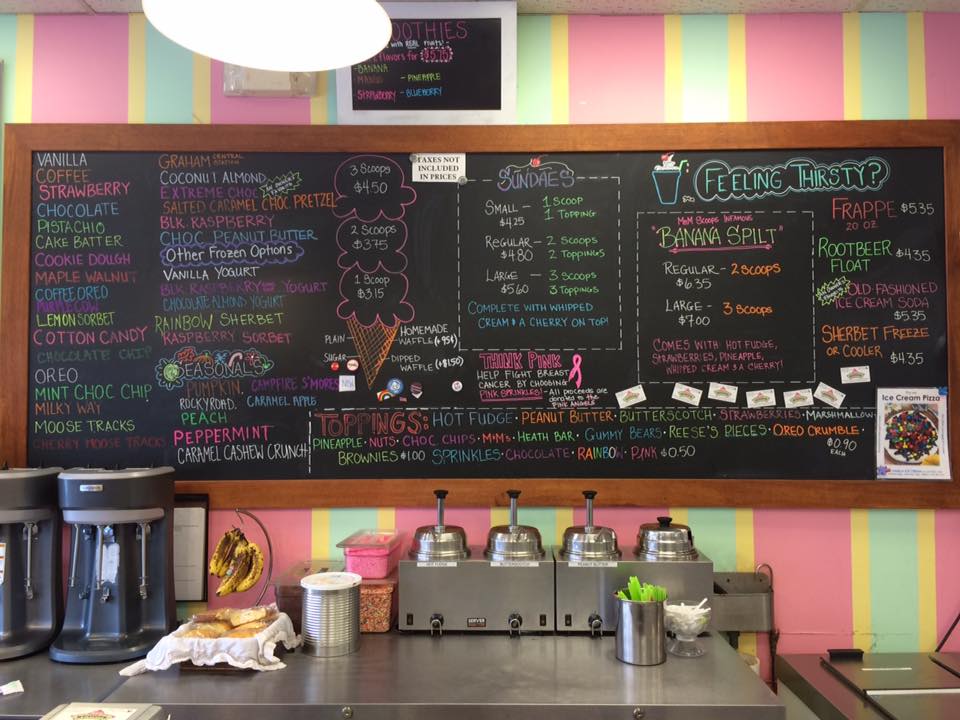 OOTHIES
with REAL fruits!
flavors for $5.75
-BANANA
MANGO
-PINEAPPLE
-STRAWBERRY
-BLUEBERRY
VANILLA
COFFEE
STRAWBERRY
CHOCOLATE
PISTACHIO
CAKE BATTER
COOKIE DOUGH
MAPLE WALNUT
COFFEE OREO
PURPLE COW
LEMON SORBET
COTTON CANDY
CHOCOLATE CHIP
OREO
MINT CHOC CHIP
MILKY WAY
MOOSE TRACKS
CHERRY MOOSE TRACKS
GRAHAM CENTRAL STATION
COCONUT ALMOND
EXTREME CHOC
SALTED CARAMEL CHOC PRETZEL
BLK RASPBERRY
CHOC PEANUT BUTTER
OTHER FROZEN OPTIONS
VANILLA YOGURT
BLK RASPBERRY YOGURT
CHOCOLATE ALMOND YOGURT
RAINBOW SHERBET
RASPBERRY SORBET
SEASONALS
PUMPKIN
CAMPFIRE S'MORES
ROCKY ROAD
CARAMEL APPLE
PEACH
PEPPERMINT
CARAMEL CASHEW CRUNCH
3 Scoops
$4.50
2 Scoops
$3.75
1 Scoop
$3.15
PLAIN
SUGAR
HOMEMADE
WAFFLE (+95¢)
DIPPED
WAFFLE (+$1.50)
TAXES NOT
INCLUDED
IN PRICES
SUNDAES
SMALL - 1 SCOOP
$4.25 1 TOPPING
REGULAR - 2 SCOOPS
$4.80 2 TOPPINGS
LARGE - 3 SCOOPS
$5.60 3 TOPPINGS
COMPLETE WITH WHIPPED
CREAM & A CHERRY ON TOP!
THINK PINK
HELP FIGHT BREAST
CANCER BY CHOOSING
PINK SPRINKLES!
-ALL PROCEEDS ARE
DONATED TO THE
PINK ANGELS
FEELING THIRSTY?
MOM SCOOPS INFAMOUS
"BANANA SPILT"
REGULAR - 2 SCOOPS
$6.35
LARGE - 3 SCOOPS
$7.00
COMES WITH HOT FUDGE,
STRAWBERRIES, PINEAPPLE,
WHIPPED CREAM & A CHERRY!
FRAPPE $5.35
20 OZ
ROOTBEER
FLOAT $4.35
OLD-FASHIONED
ICE CREAM SODA
$5.35
SHERBET FREEZE
OR COOLER $4.35
TOPPINGS: HOT FUDGE · PEANUT BUTTER · BUTTERSCOTCH · STRAWBERRIES · MARSHMALLOW
PINEAPPLE · NUTS · CHOC CHIPS · M&M's · HEATH BAR · GUMMY BEARS · REESE'S PIECES · OREO CRUMBLE · $0.90
EACH
BROWNIES $1.00 SPRINKLES · CHOCOLATE · RAINBOW · PINK · $0.50
Ice Cream Pizza
HOT FUDGE
BUTTERSCOTCH
PEANUT BUTTER
SERVER